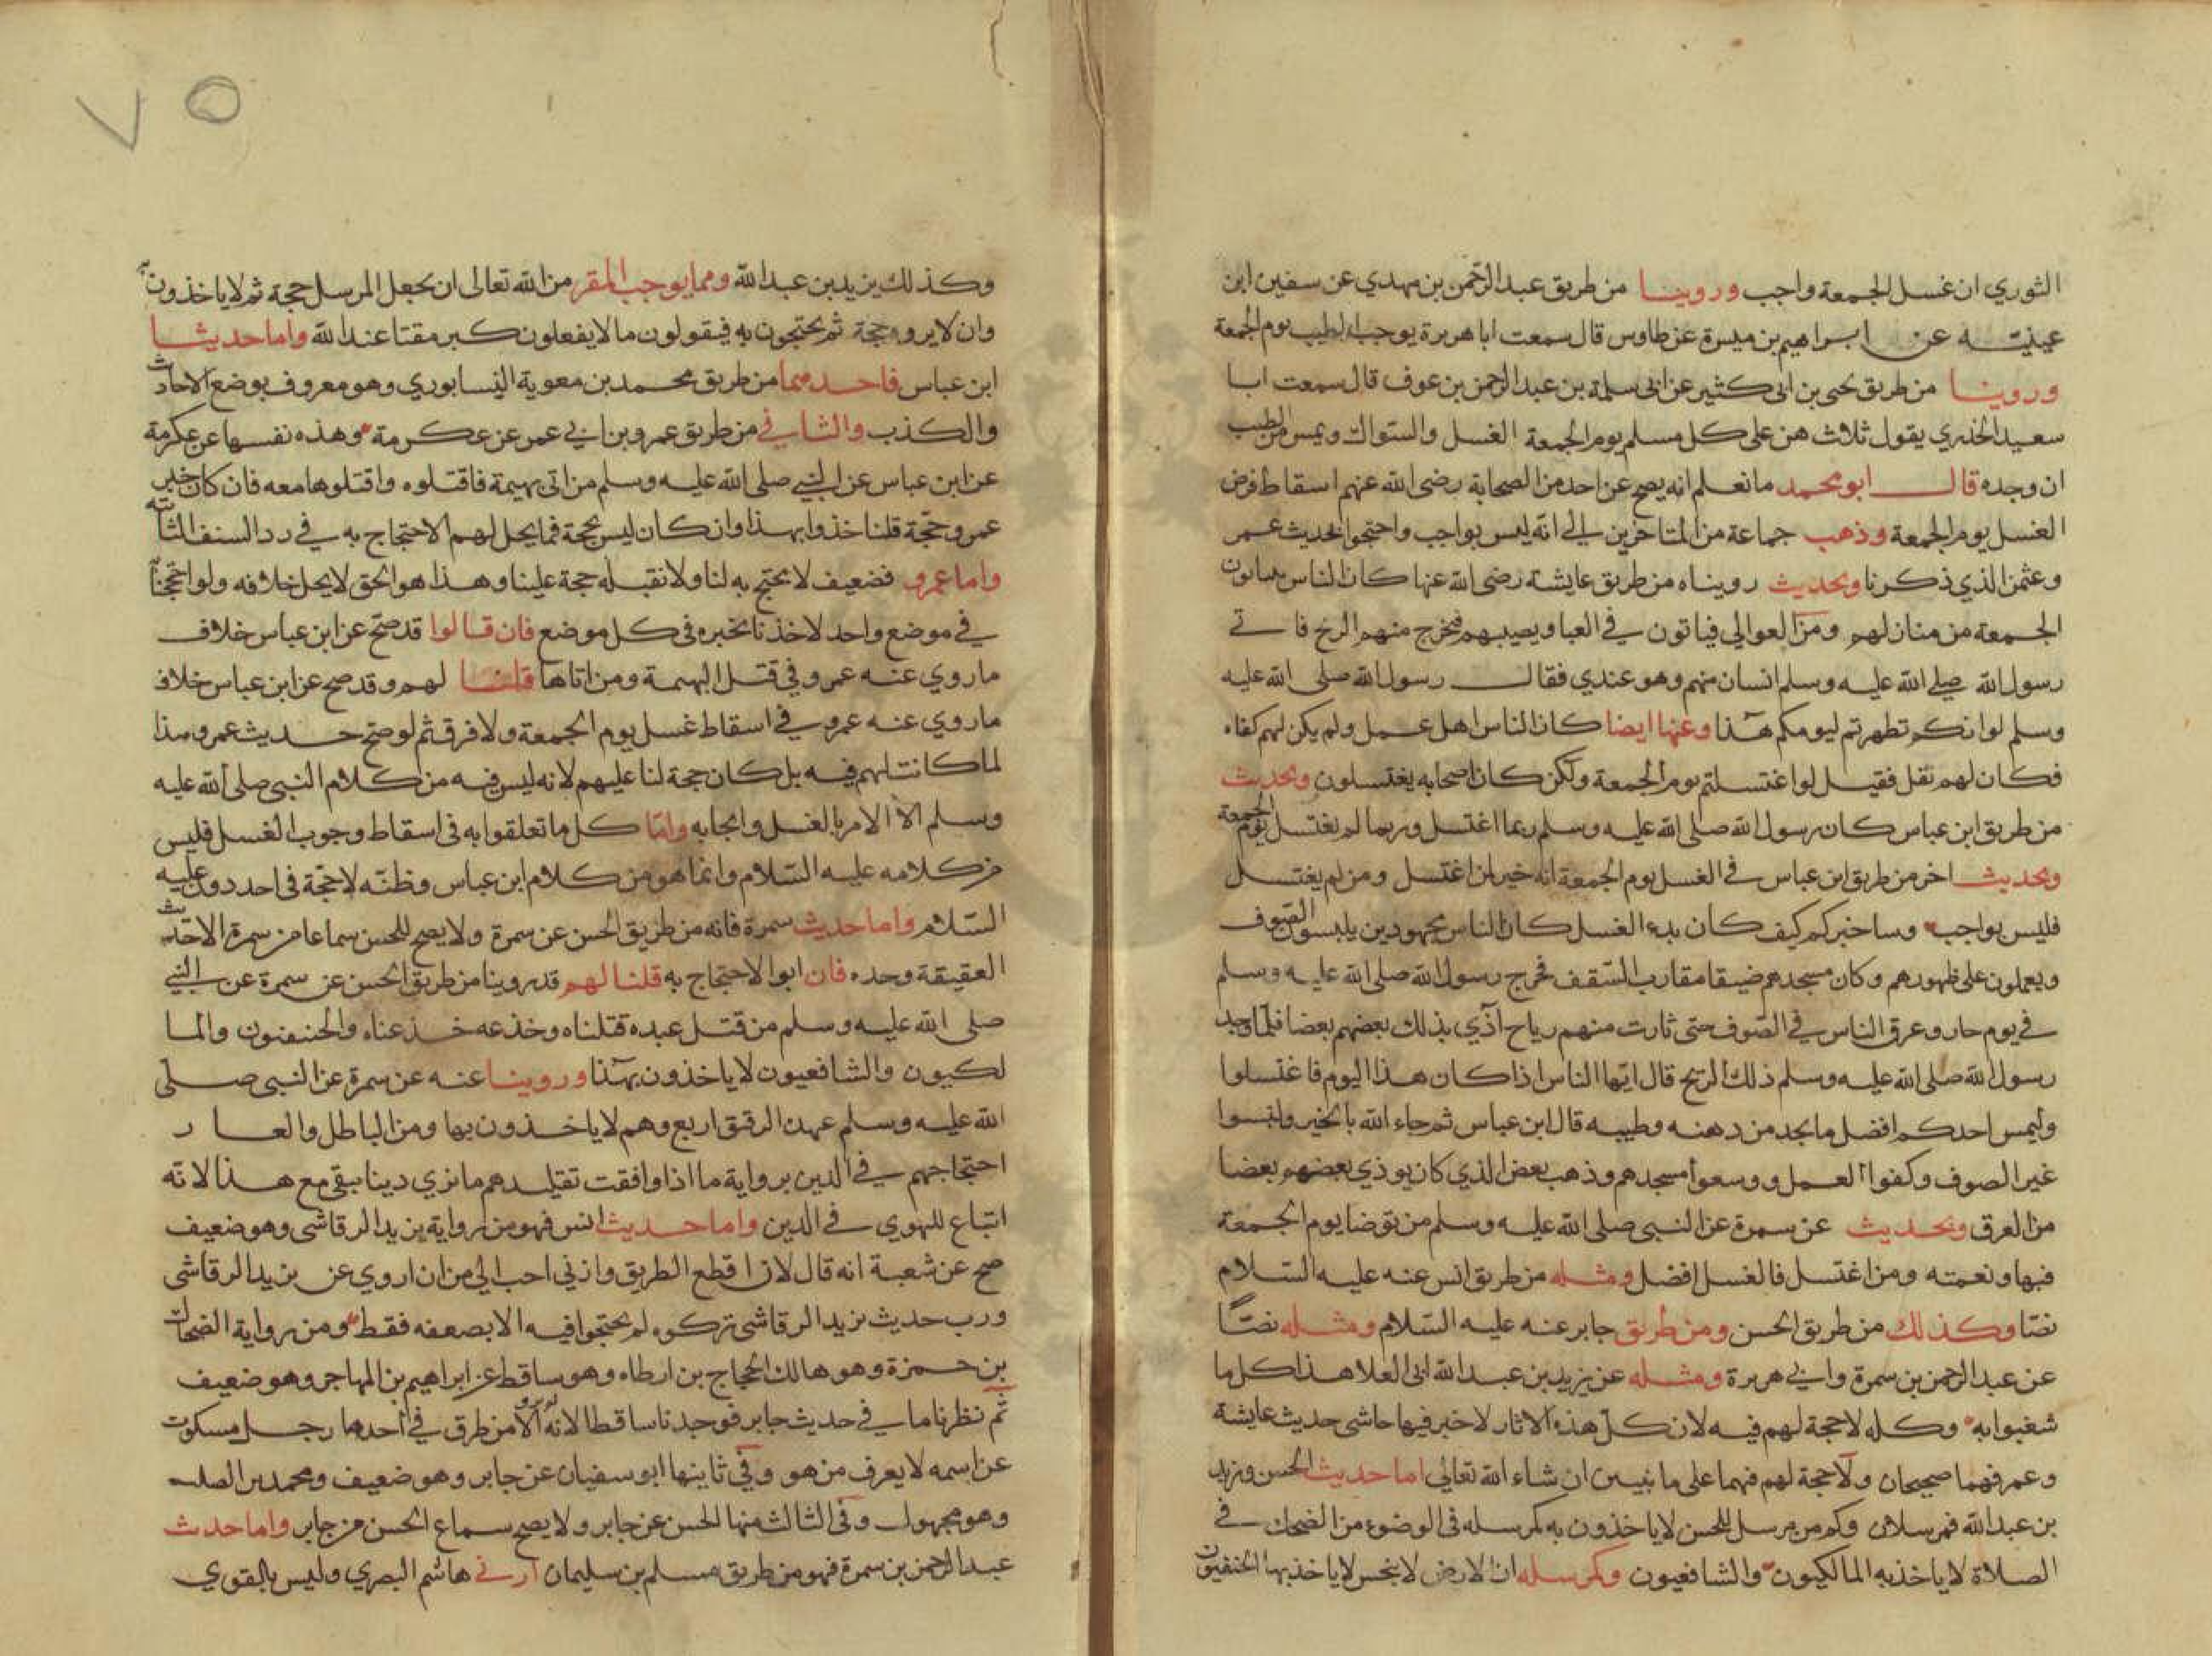 الثوري ان غسل الجمعة واجب وروينا من طريق عبد الرحمن بن مهدي عن سفين ابن
عيينه عن ابراهيم بن ميسرة عن طاوس قال سمعت ابا هريرة يوجب الطيب يوم الجمعة
وروينا من طريق يحيى بن ابي كثير عن ابي سلمة بن عبد الرحمن بن عوف قال سمعت ابا
سعيد الخدري يقول ثلاث هن على كل مسلم يوم الجمعة الغسل والسواك ويمس من الطيب
ان وجده قال ابو محمد ما نعلم انه يصح عن احد من الصحابة رضي الله عنهم اسقاط فرض
الغسل يوم الجمعة وذهب جماعة من المتاخرين الي انه ليس بواجب واحتجوا بحديث عمر
وعثمن الذي ذكرنا وبحديث رويناه من طريق عايشة رضي الله عنها كان الناس ينتابون
الجمعة من منازلهم ومن العوالي فياتون في العبا ويصيبهم فتخرج منهم الريح فاتي
رسول الله صلي الله عليه وسلم انسان منهم وهو عندي فقال رسول الله صلى الله عليه
وسلم لو انكم تطهرتم ليومكم هذا وعنها ايضا كان الناس اهل عمل ولم يكن لهم كفاه
فكان لهم تفل فقيل لو اغتسلتم يوم الجمعة ولكن كان اصحابه يغتسلون وبحديث
من طريق ابن عباس كان رسول الله صلى الله عليه وسلم ربما اغتسل وربما لم يغتسل يوم الجمعة
وبحديث اخر من طريق ابن عباس في الغسل يوم الجمعة انه خير لمن اغتسل ومن لم يغتسل
فليس بواجب وساخبركم كيف كان بدء الغسل كان الناس مجهودين يلبسون الصوف
ويعملون على ظهورهم وكان مسجدهم ضيقا مقارب السقف فخرج رسول الله صلى الله عليه وسلم
في يوم حار وعرق الناس في الصوف حتى ثارت منهم رياح آذي بذلك بعضهم بعضا فلما وجد
رسول الله صلى الله عليه وسلم ذلك الريح قال ايها الناس اذا كان هذا اليوم فاغتسلوا
وليمس احدكم افضل ما يجد من دهنه وطيبه قال ابن عباس ثم جاء الله بالخير ولبسوا
غير الصوف وكفوا العمل ووسعوا مسجدهم وذهب بعض الذي كان يوذي بعضهم بعضا
من العرق وبحديث عن سمرة عن النبي صلى الله عليه وسلم من توضا يوم الجمعة
فبها ونعمته ومن اغتسل فالغسل افضل ومثله من طريق انس عنه عليه السلام
نصا وكذلك من طريق الحسن ومن طريق جابر عنه عليه السلام ومثله نصا
عن عبد الرحمن بن سمرة وابي هريرة ومثله عن يزيد بن عبد الله ابي العلا هذا كل ما
شغبوا به وكله لا حجة لهم فيه لان كل هذه الاثار لا خير فيها حاشى حديث عايشة
وعمر فهما صحيحان ولا حجة لهم فيهما على ما نبين ان شاء الله تعالي اما حديث الحسن ويزيد
بن عبد الله فمرسلان وكم من مرسل للحسن لا ياخذون به كمرسله في الوضوء من الضحك في
الصلاة لا ياخذ به المالكيون والشافعيون وكمرسله ان الارض لا ينجس لا ياخذ بها الحنفيون
٧٥
وكذلك يزيد بن عبد الله ومما يوجب المقر من الله تعالى ان يجعل المرسل حجة ثم لا ياخذون به
وان لا يروه حجة ثم يحتجون به فيقولون ما لا يفعلون كبر مقتا عند الله واما حديثا
ابن عباس فاحدهما من طريق محمد بن معوية النيسابوري وهو معروف بوضع الاحاديث
والكذب والثاني من طريق عمرو بن ابي عمر عن عكرمة وهذه نفسها عن عكرمة
عن ابن عباس عن النبي صلى الله عليه وسلم من اتى بهيمة فاقتلوه واقتلوها معه فان كان خبر
عمرو حجة قلنا خذوا بهذا وان كان ليس بحجة فما يحل لهم الاحتجاج به في رد السنن الثابته
واما عمرو فضعيف لا يحتج به لنا ولا نقبله حجة علينا وهذا هو الحق لا يحل خلافه ولو احتججنا به
في موضع واحد لاخذنا بخبره في كل موضع فان قالوا قد صح عن ابن عباس خلاف
ما روي عنه عمرو في قتل البهيمة ومن اتاها قلنا لهم وقد صح عن ابن عباس خلاف
ما روي عنه عمرو في اسقاط غسل يوم الجمعة ولا فرق ثم لو صح حديث عمرو هذا
لما كانت لهم فيه بل كان حجة لنا عليهم لانه ليس فيه من كلام النبي صلى الله عليه
وسلم الا الامر بالغسل وايجابه واما كل ما تعلقوا به في اسقاط وجوب الغسل فليس
من كلامه عليه السلام وانما هو من كلام ابن عباس وظنه لا حجة في احد دونه عليه
السلام واما حديث سمرة فانه من طريق الحسن عن سمرة ولا يصح للحسن سماعا من سمرة الا حديث
العقيقة وحده فان ابوا الاحتجاج به قلنا لهم قد روينا من طريق الحسن عن سمرة عن النبي
صلى الله عليه وسلم من قتل عبده قتلناه وخذعه خذعناه والحنفيون والما
لكيون والشافعيون لا ياخذون بهذا وروينا عنه عن سمرة عن النبي صلى
الله عليه وسلم عهدة الرقيق اربع وهم لا ياخذون بها ومن الباطل والعار
احتجاجهم في الدين برواية ما اذا وافقت تقليدهم ما نري دينا يبقي مع هذا لانه
اتباع للهوي في الدين واما حديث انس فهو من رواية يزيد الرقاشي وهو ضعيف
صح عن شعبة انه قال لان اقطع الطريق وازني احب الي من ان اروي عن يزيد الرقاشي
ورب حديث يزيد الرقاشي تركوه لم يحتجوا فيه الا بضعفه فقط ومن رواية الضحاك
بن حمزة وهو هالك الحجاج بن ارطاه وهو ساقط عن ابراهيم بن المهاجر وهو ضعيف
ثم نظرنا ما في حديث جابر فوجدناه ساقطا لانه لم يرو الا من طرق في احدها رجل مسكوت
عن اسمه لا يعرف من هو وفي ثانيها ابو سفيان عن جابر وهو ضعيف ومحمد بن الصلت
وهو مجهول وفي الثالث منها الحسن عن جابر ولا يصح سماع الحسن من جابر واما حديث
عبد الرحمن بن سمرة فهو من طريق مسلم بن سليمان هاشم البصري وليس بالقوي